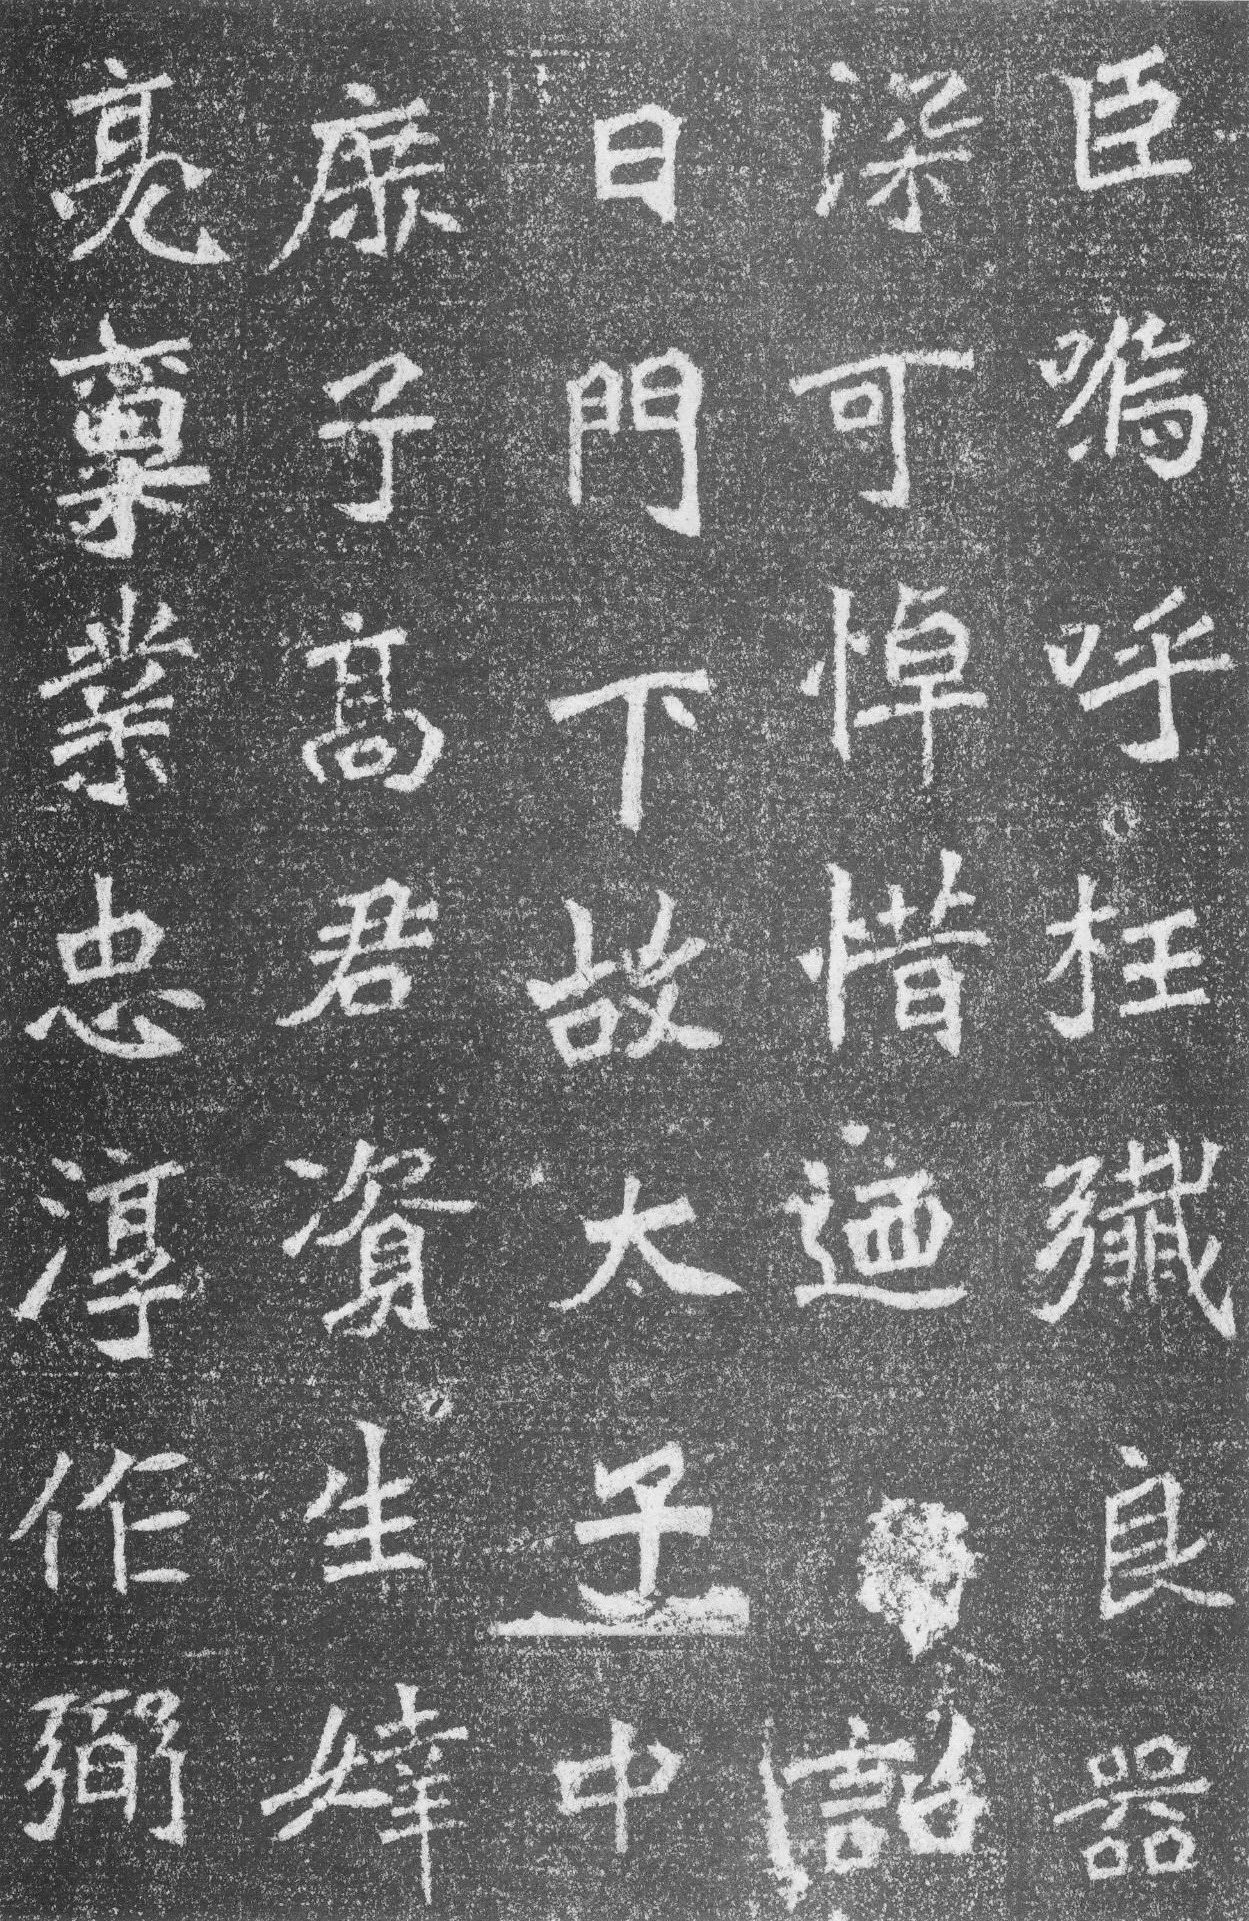 臣嗚呼枉殲良器
深可悼惜迺詔
曰門下故太子中
庶子高君資生煒
亮稟業忠淳作弼